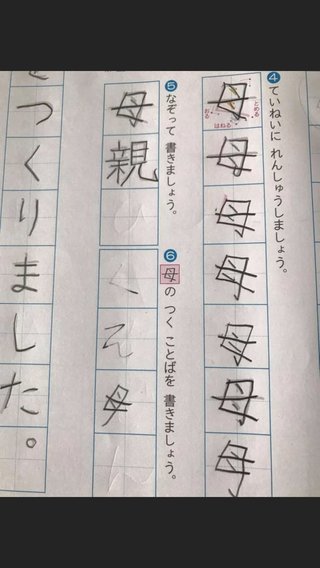 ④ていねいに れんしゅうしましょう。
母母母母母母母
とめる
はねる
おる
⑤なぞって 書きましょう。
母親
⑥母の つく ことばを 書きましょう。
くそ母
つくりました。